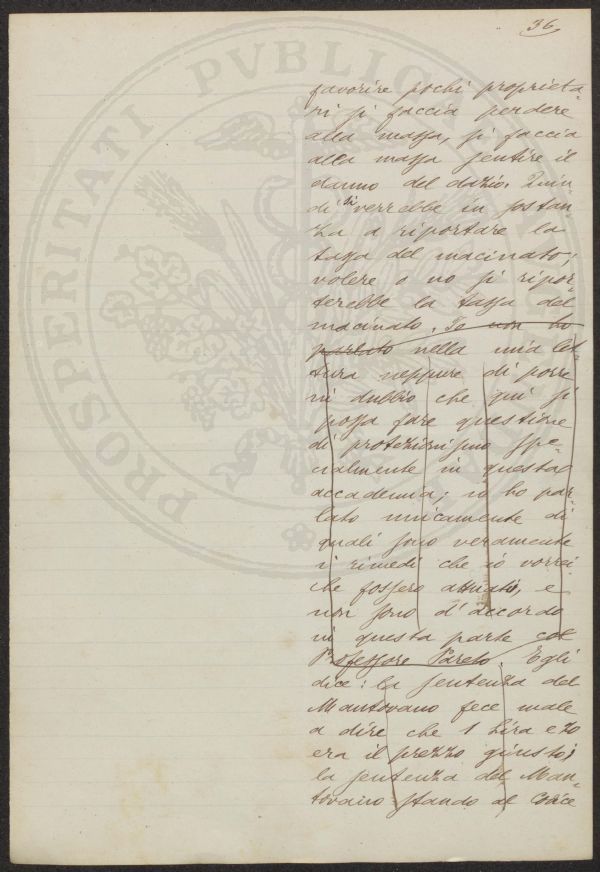 36
favorire pochi proprieta-
ri si faccia perdere
alla massa, si faccia
alla massa sentire il
danno del dazio. Quin-
di si verrebbe in sostan-
za a riportare la
tassa del macinato;
volere o no si ripor-
terebbe la tassa del
macinato. Io non ho
parlato nella mia let-
tura neppure di porre
in dubbio che qui si
possa fare questione
di protezionismo spe-
cialmente in questa
accademia; io ho par-
lato unicamente di
quali sono veramente
i rimedi che io vorrei
che fossero attuati, e
non sono d'accordo
in questa parte col
Professore Pareto. Egli
dice: la sentenza del
Mantovano fece male
a dire che 1 Lira e 20
era il prezzo giusto;
la sentenza del Man-
tovano stando al Codice
PROSPERITATI PVBLICAE